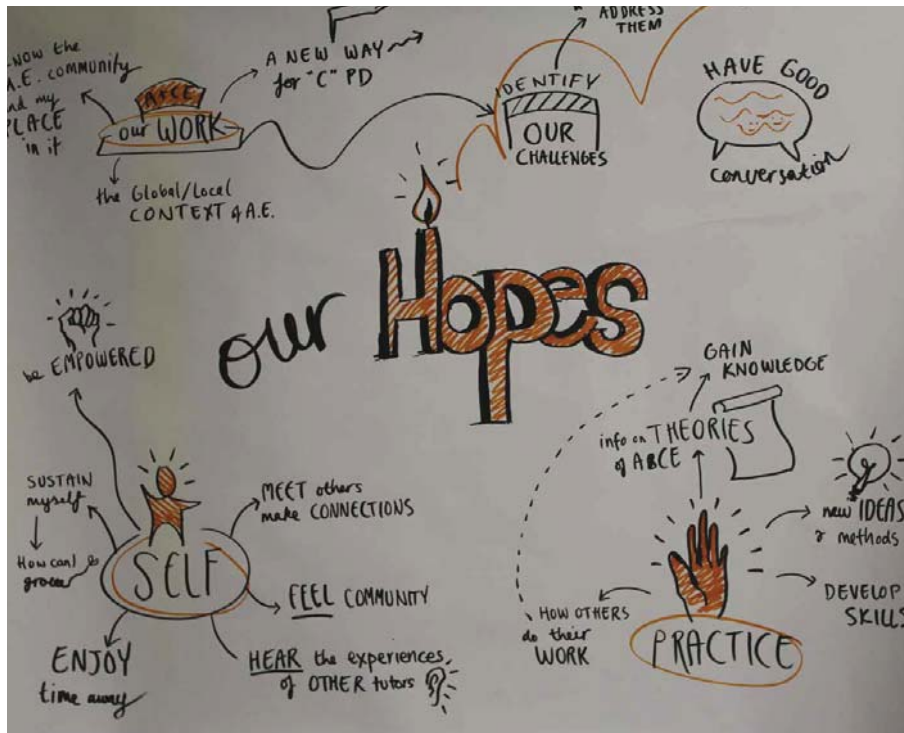 KNOW the
A.E. community
and my
PLACE
in it
A+CE
our WORK
A NEW WAY
for "C" PD
the Global/Local
CONTEXT of A.E.
ADDRESS
THEM
IDENTIFY
OUR
CHALLENGES
HAVE GOOD
conversation
our Hopes
be EMPOWERED
SUSTAIN
myself
How can I
grow
SELF
MEET others
make CONNECTIONS
FEEL COMMUNITY
HEAR the experiences
of OTHER tutors
ENJOY
time away
GAIN
KNOWLEDGE
info on THEORIES
of ABCE
new IDEAS
& methods
DEVELOP
SKILLS
HOW OTHERS
do their
WORK
PRACTICE